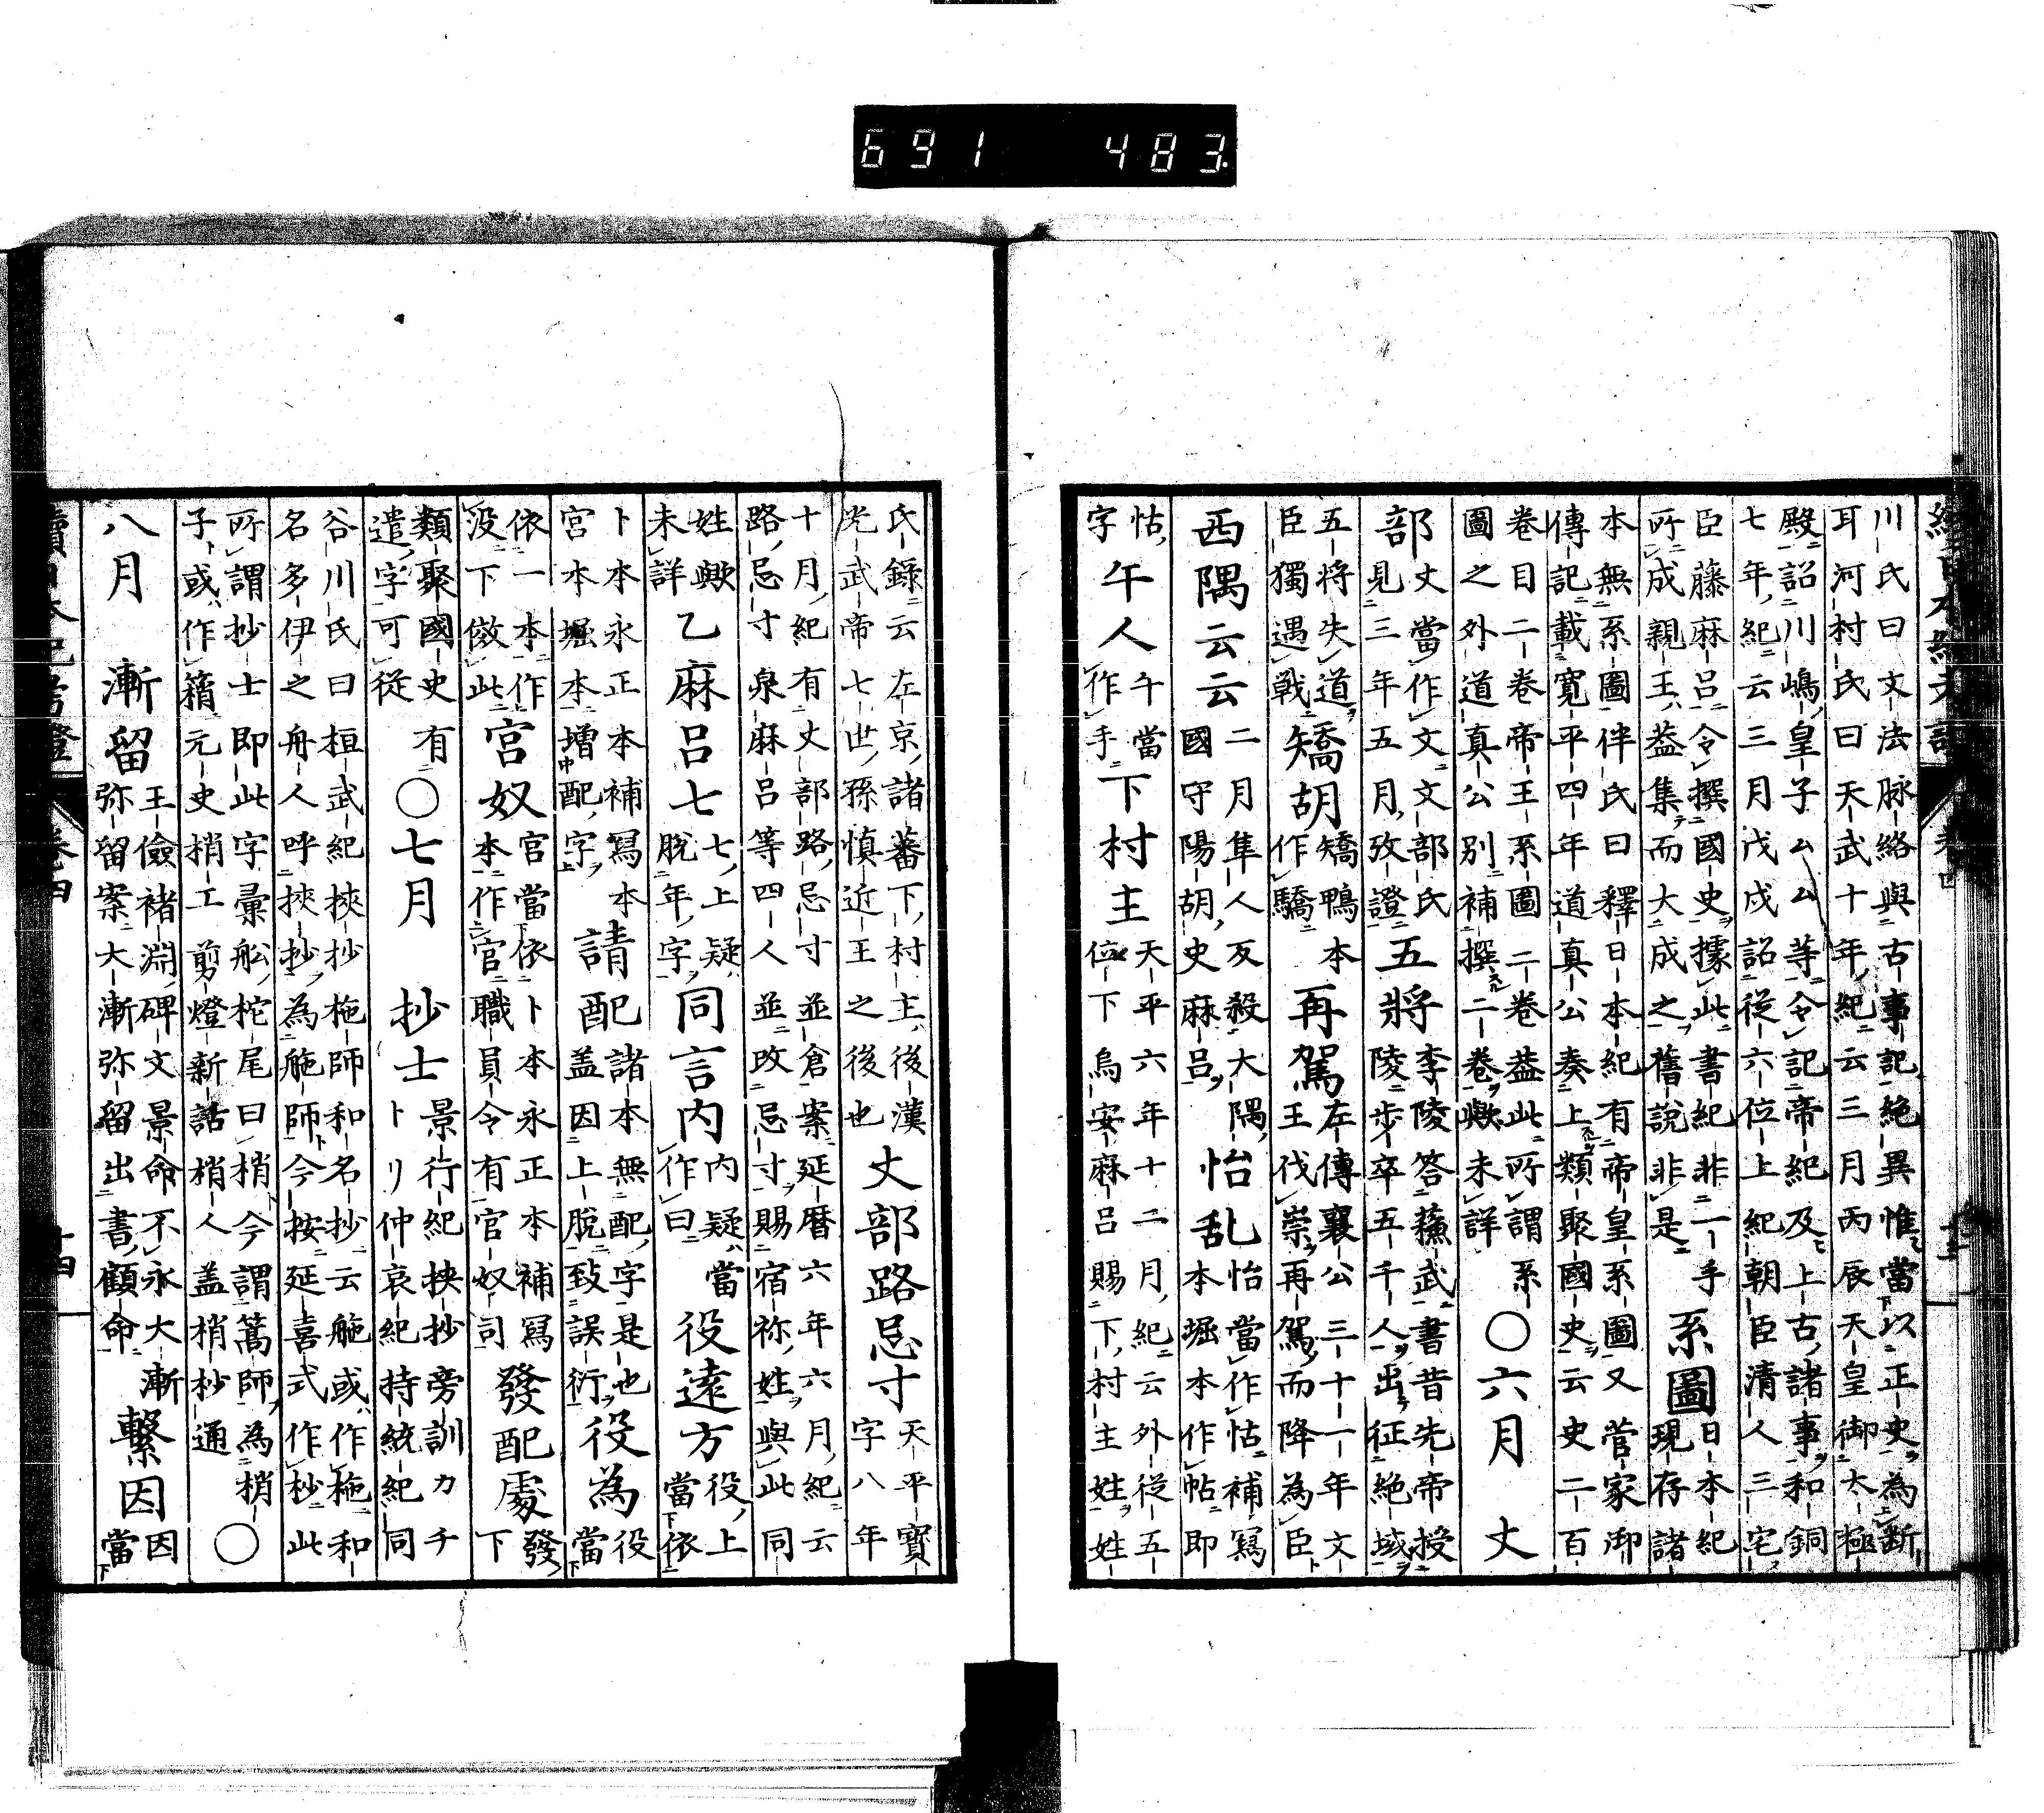 川氏曰文法脉絡與古事記絶異惟當以正史為断
耳河村氏曰天武十年紀云三月丙辰天皇御大極
殿詔川嶋皇子ムム等令記帝紀及上古諸事和銅
七年紀云三月戊戌詔從六位上紀朝臣清人三宅
臣藤麻呂令撰國史據此書紀非一手
所成親王葢集而大成之舊說非是
系圖
日本紀
現存諸
本無系圖伴氏曰釋日本紀有帝皇系圖又菅家御
傳記載寛平四年道真公奏上類聚國史云史二百
卷目二卷帝王系圖二卷葢此所謂系
圖之外道真公別補撰二卷歟未詳
○六月 丈
部
丈當作文文部氏
見三年五月攷證
五將
李陵答蘓武書昔先帝授
陵步卒五千人出征絶域
五將失道
臣獨遇戰
矯胡
矯鴨本
作驕
再駕
左傳襄公三十一年文
王伐崇再駕而降為臣
西隅云云
二月隼人反殺大隅
國守陽胡史麻呂
怡乱
怡當作怙補寫
本堀本作帖即
怙
字
午人
午當
作手
下村主
天平六年十二月紀云外從五
位下烏安麻呂賜下村主姓姓
氏録云左京諸蕃下村主後漢
光武帝七世孫慎近王之後也
丈部路忌寸
天平寳
字八年
十月紀有丈部路忌寸並倉案延暦六年六月紀云
路忌寸泉麻呂等四人並改忌寸賜宿祢姓與此同
姓歟
未詳
乙麻呂七
七上疑
脫年字
同言内
内疑當
作曰
役遠方
役上
當依
卜本永正本補寫本
宮本堀本增配字
請配
諸本無配字是也
盖因上脫致誤衍
役為
役
當
依一本作
没下倣此
宮奴
宮當依卜本永正本補寫
本作官職員令有官奴司
發配處
發
下
類聚國史有
遣字可從
○七月 抄士
景行紀挾抄旁訓カチ
トリ仲哀紀持統紀同
谷川氏曰桓武紀挾抄柂師和名抄云舵或作柂和
名多伊之舟人呼挾抄為舵師今按延喜式作杪此
所謂抄士即此字彙船柁尾曰梢今謂篙師為梢
子或作䈰元史梢工剪燈新話梢人盖梢杪通
○
八月 漸留
王儉褚淵碑文景命不永大漸
弥留案大漸弥留出書顧命
繋因
因
當
691 483